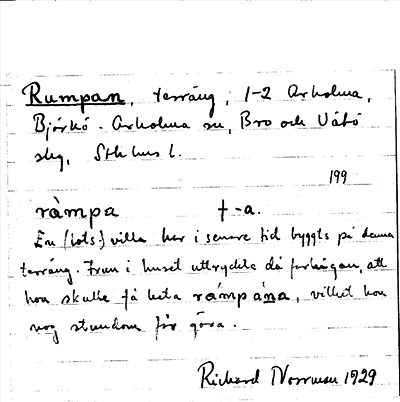 Rumpan, terräng, 1-2 Arholma,
Björkö-Arholma sn, Bro och Vätö
skg, Sthlms l.
199
ràmpa † -a.
En (lots) villa har i senare tid byggts på denna
terräng. Frun i huset uttryckte då farhågan, att
hon skulle få heta ràmpána, vilket hon
nog stundom får göra.
Richard Norrman 1929